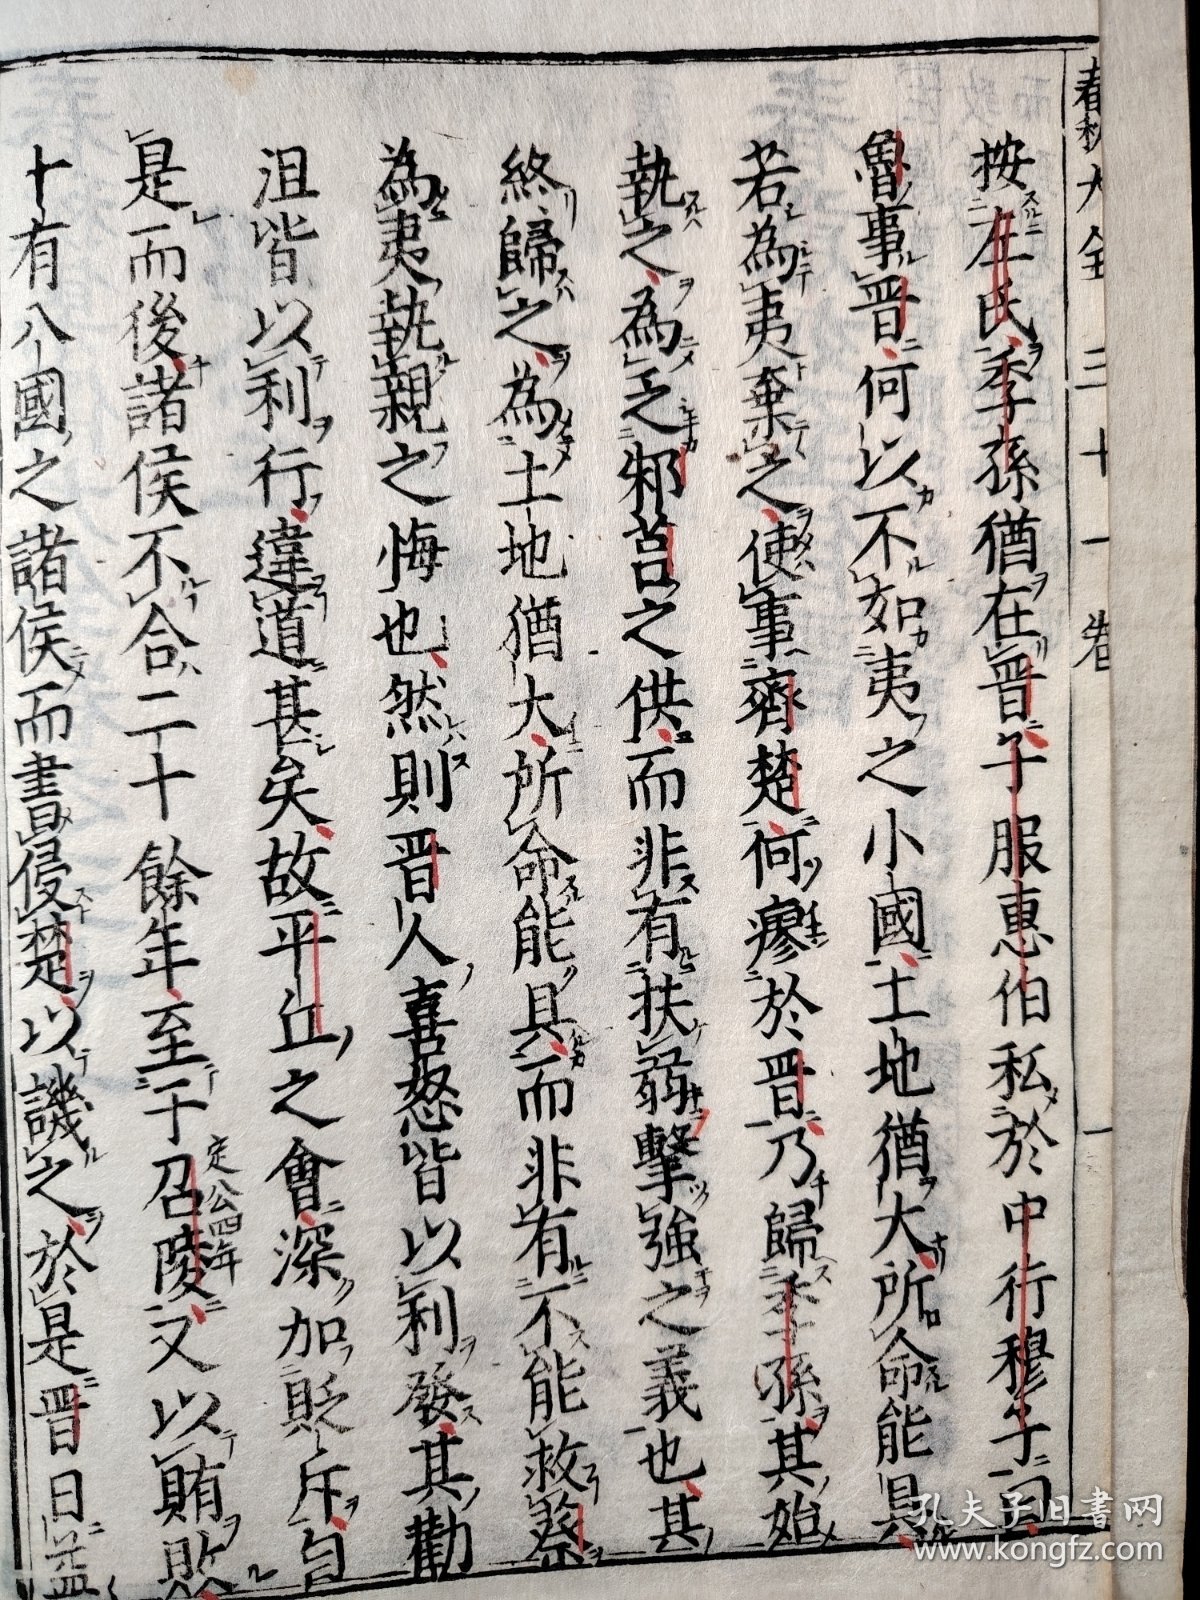 春秋大全三十一卷 一
按左氏季孫猶在晉子服惠伯私於中行穆子曰
魯事晉何以不如夷之小國土地猶大所命能具
若為夷棄之使事齊楚何瘳於晉乃歸季孫其始
執之為乏邾莒之供而非有扶弱擊強之義也其
終歸之為土地猶大所命能具而非有不能救蔡
為夷執親之悔也然則晉人喜怒皆以利發其勸
沮皆以利行違道甚矣故平丘之會深加貶斥自
是而後諸侯不合二十餘年至于召陵定公四年又以賄敗
十有八國之諸侯而書侵楚以譏之於是晉日益
孔夫子旧書网
www.kongfz.com